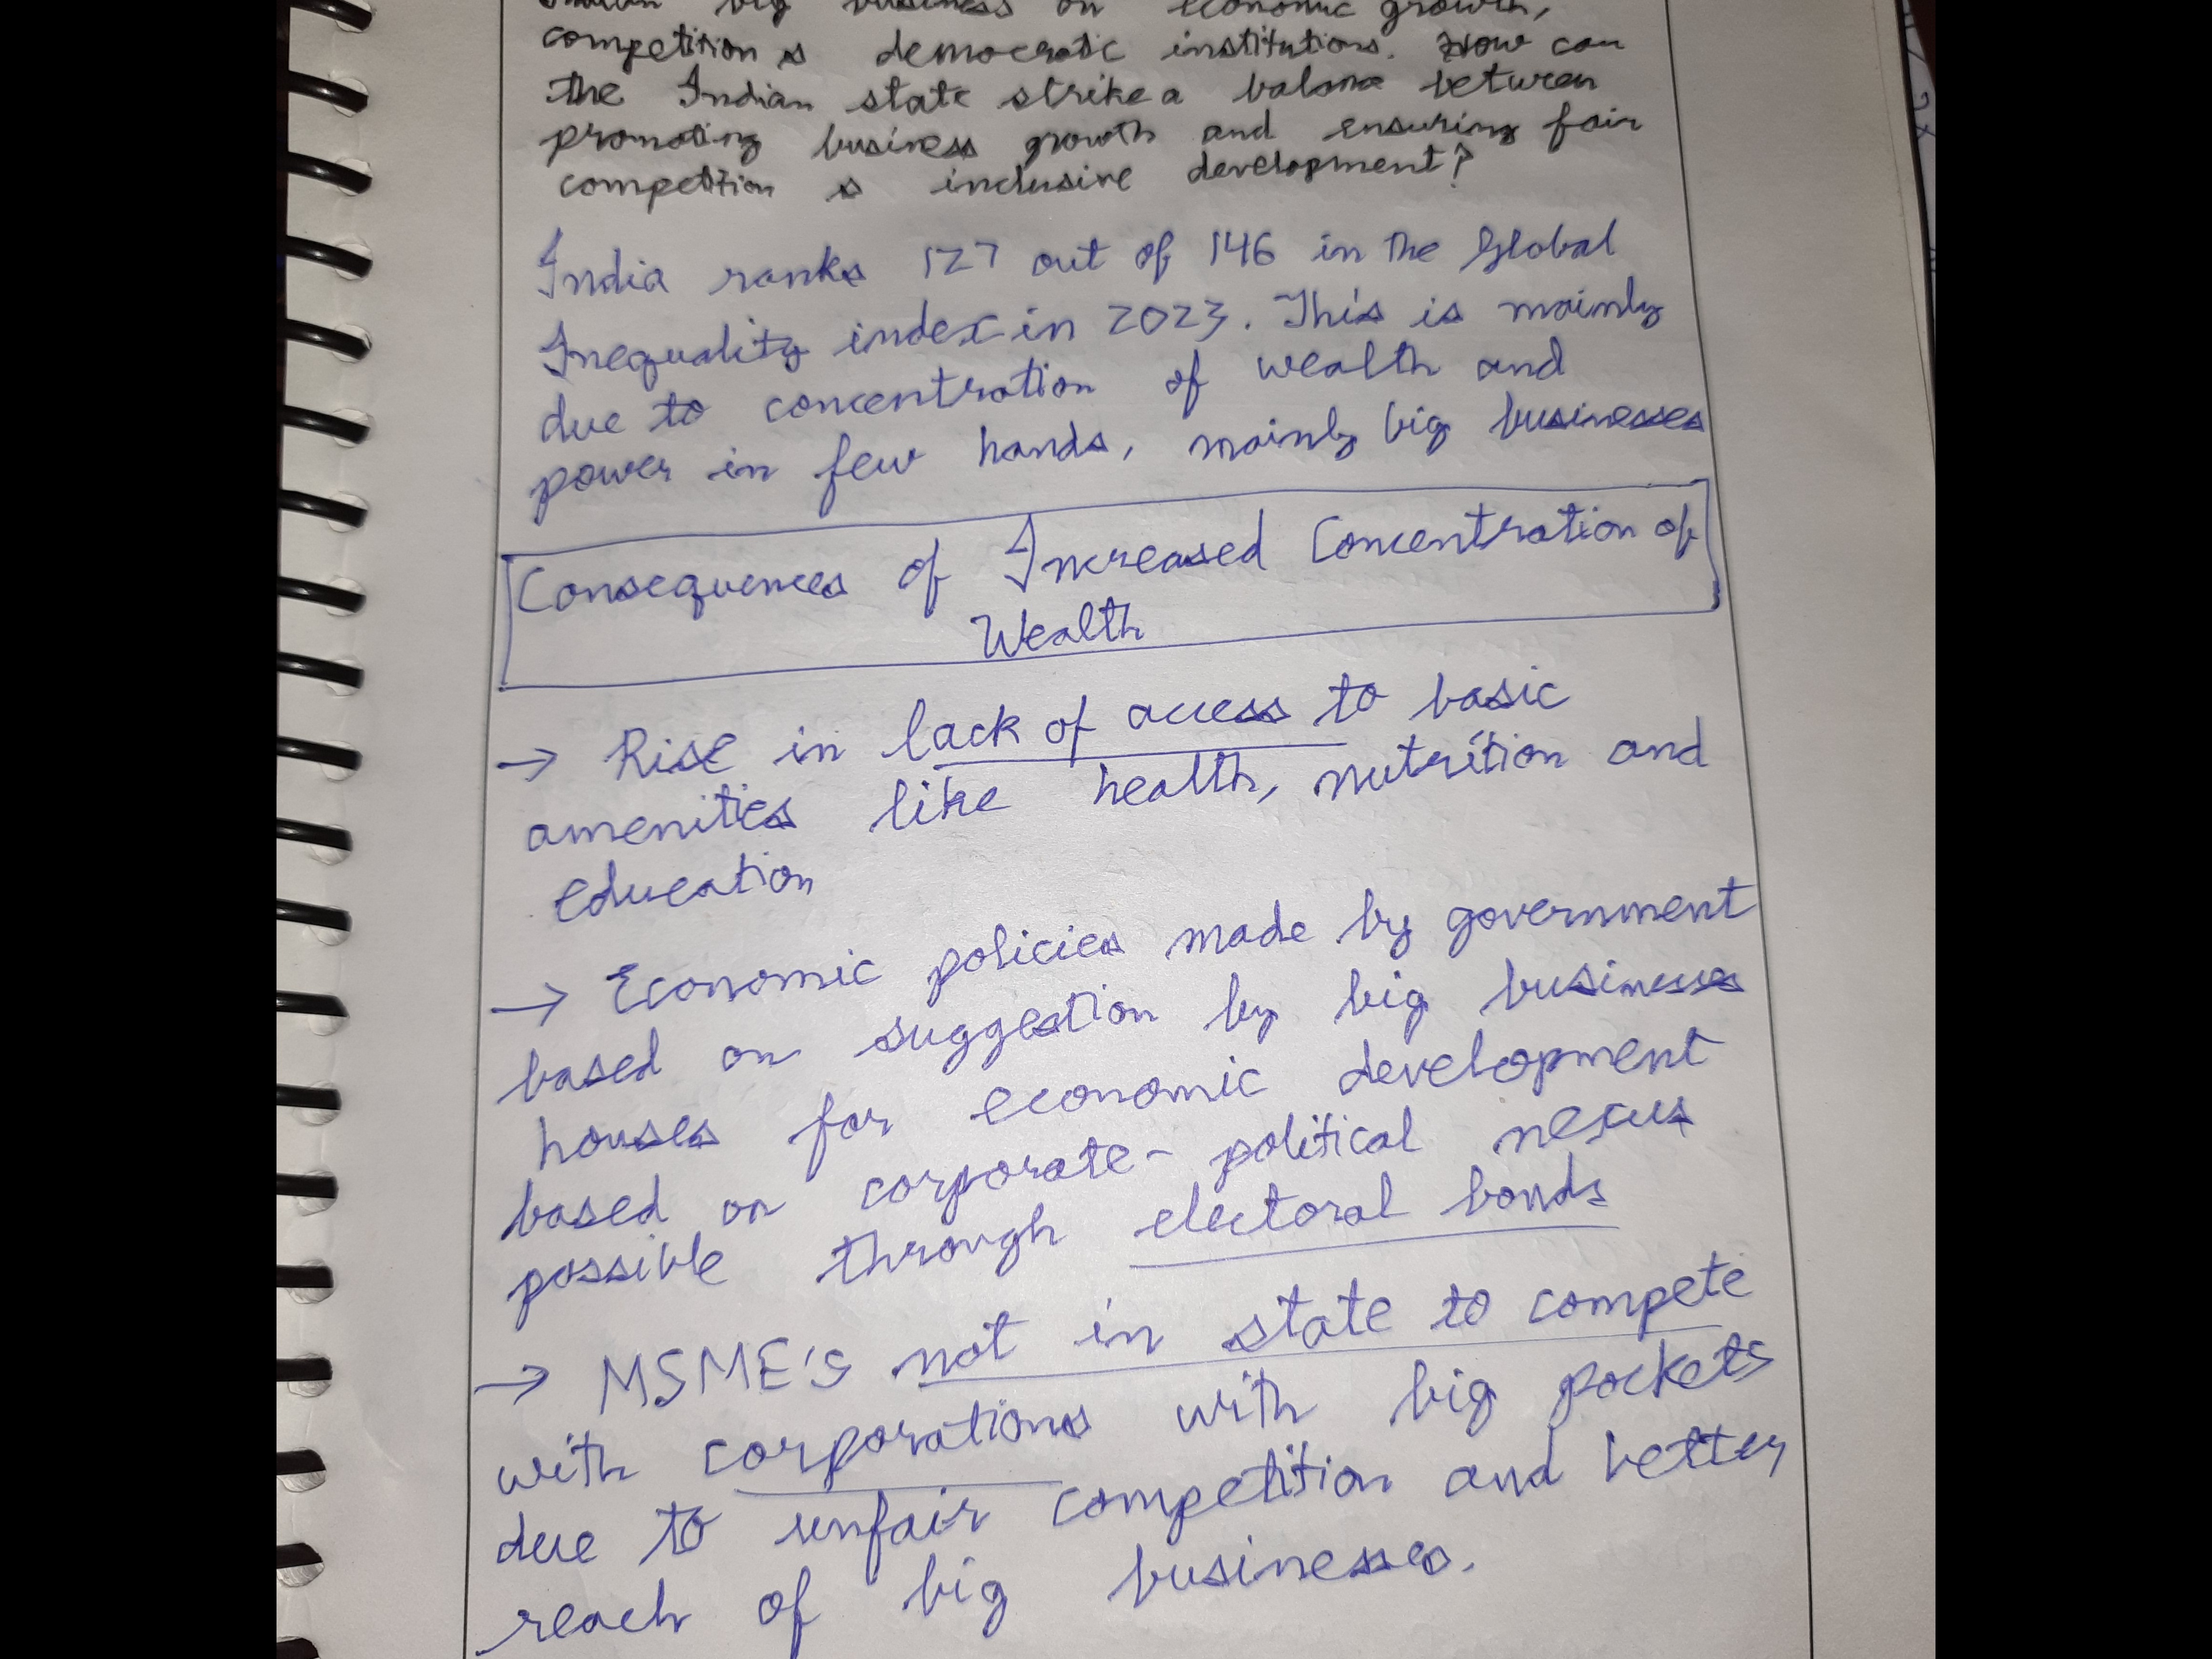 Indian big business on economic growth,
competition & democratic institutions. How can
the Indian state strike a balance between
promoting business growth and ensuring fair
competition & inclusive development?
India ranks 127 out of 146 in the Global
Inequality index in 2023. This is mainly
due to concentration of wealth and
power in few hands, mainly big businesses
Consequences of Increased Concentration of
Wealth
→ Rise in lack of access to basic
amenities like health, nutrition and
education
→ Economic policies made by government
based on suggestion by big business
houses for economic development
based on corporate-political nexus
possible through electoral bonds
→ MSME's not in state to compete
with corporations with big pockets
due to unfair competition and better
reach of big businesses.